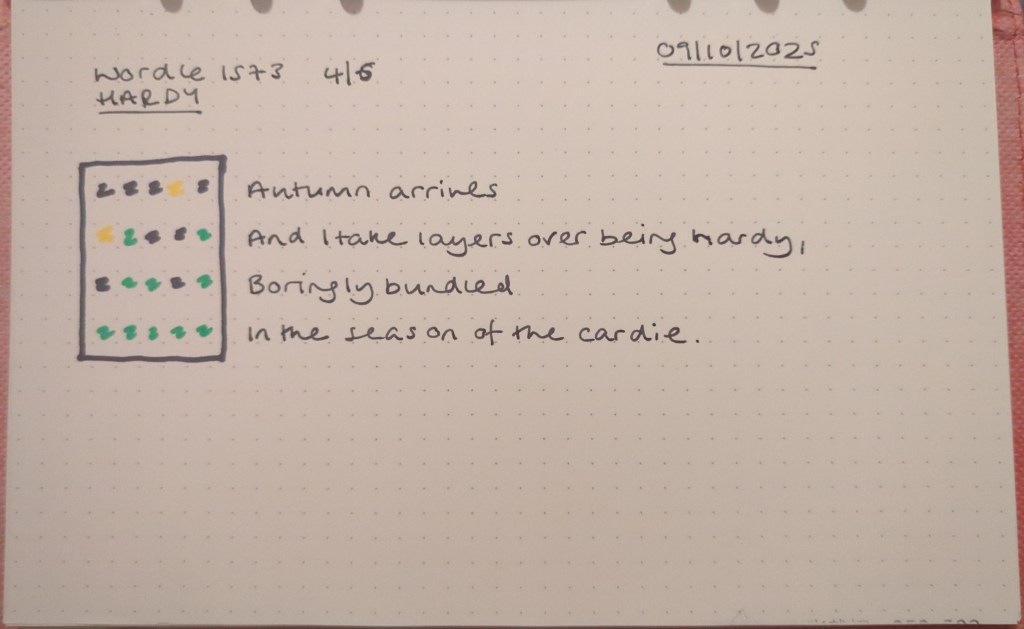 09/10/2025
Wordle 1573 4/6
HARDY
Autumn arrives
And I take layers over being hardy,
Boringly bundled
In the season of the cardie.